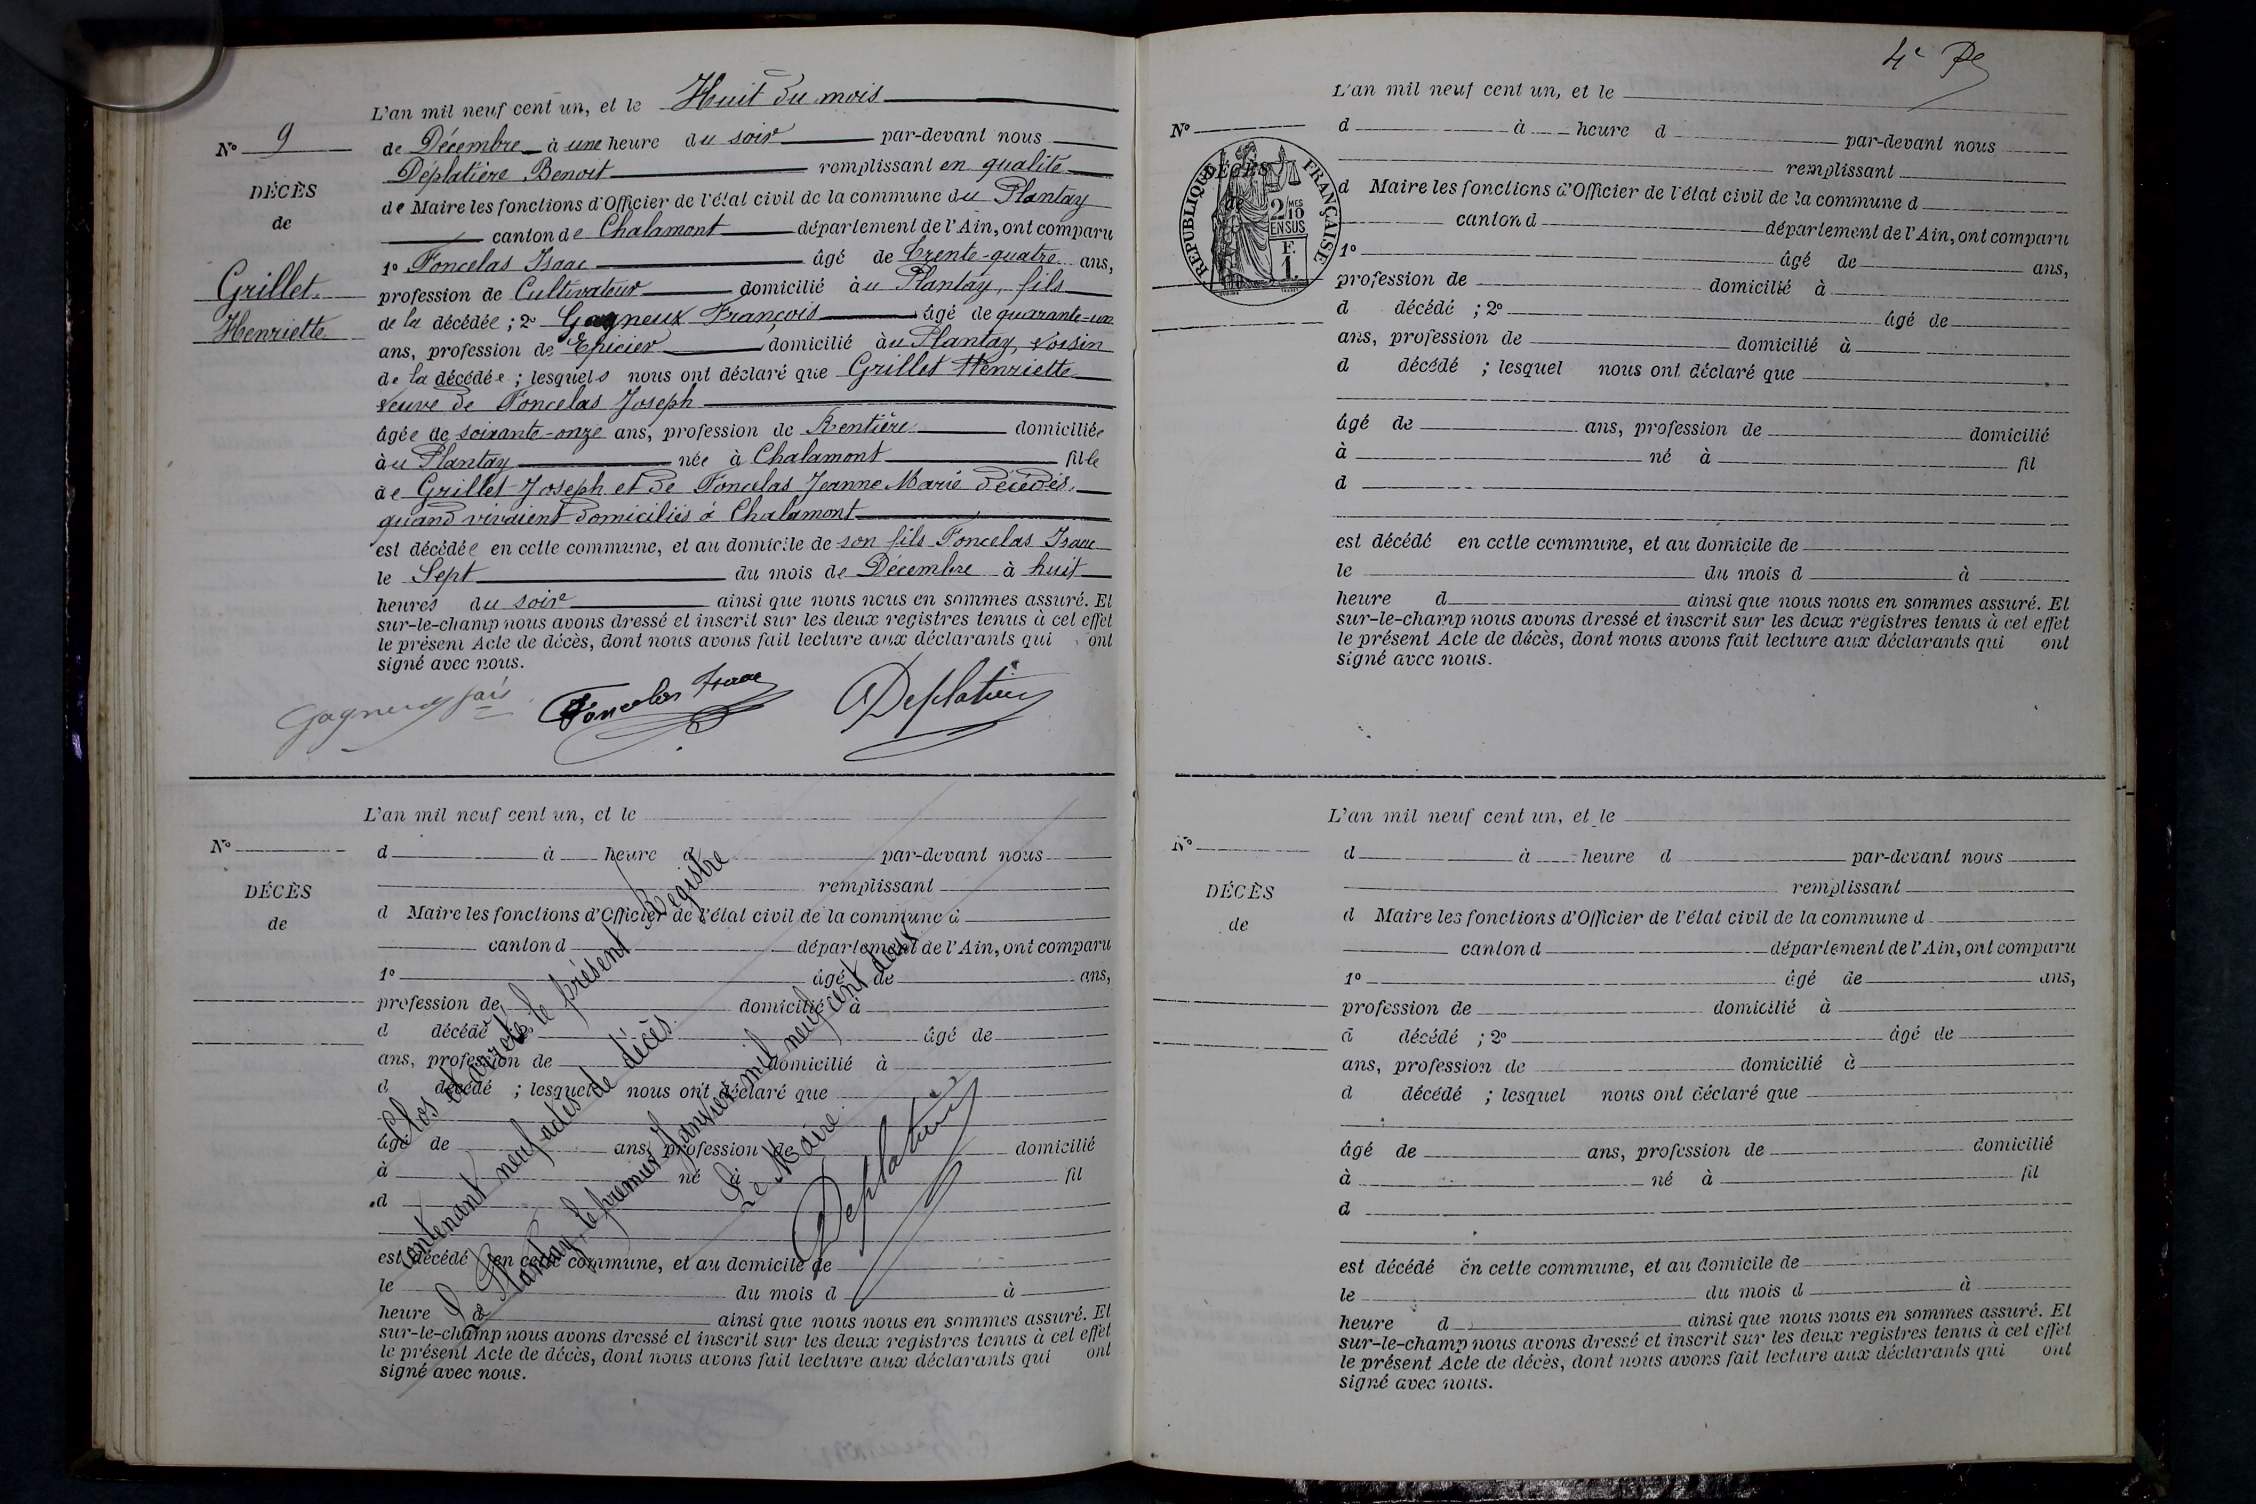 L'an mil neuf cent un, et le Huit du mois
N° 9
de Décembre à une heure du soir par-devant nous
Déplatière Benoit remplissant en qualité
DÉCÈS
de
de Maire les fonctions d'Officier de l'état civil de la commune du Plantay
canton de Chalamont département de l'Ain, ont comparu
1° Foncelas Isaac âgé de trente-quatre ans,
Grillet
profession de Cultivateur domicilié au Plantay, fils
Henriette
de la décédée ; 2° Gagneux François âgé de quarante-un
ans, profession de Epicier domicilié au Plantay, voisin
de la décédée ; lesquels nous ont déclaré que Grillet Henriette
veuve de Foncelas Joseph
âgée de soixante-onze ans, profession de Rentière domiciliée
au Plantay née à Chalamont fille
de Grillet Joseph et de Foncelas Jeanne Marie décédés,
quand vivaient domiciliés à Chalamont
est décédée en cette commune, et au domicile de son fils Foncelas Isaac
le Sept du mois de Décembre à huit
heures du soir ainsi que nous nous en sommes assuré. Et
sur-le-champ nous avons dressé et inscrit sur les deux registres tenus à cet effet
le présent Acte de décès, dont nous avons fait lecture aux déclarants qui ont
signé avec nous.
Gagneux fais Foncelas Isaac Deplatière
L'an mil neuf cent un, et le
N°
d à heure d par-devant nous
remplissant
DÉCÈS
de
d Maire les fonctions d'Officier de l'état civil de la commune d
canton d département de l'Ain, ont comparu
1° âgé de ans,
profession de domicilié à
d décédé ; 2° âgé de
ans, profession de domicilié à
d décédé ; lesquel nous ont déclaré que
âgé de ans, profession de domicilié
à né à fil
d
est décédé en cette commune, et au domicile de
le du mois d à
heure d ainsi que nous nous en sommes assuré. Et
sur-le-champ nous avons dressé et inscrit sur les deux registres tenus à cet effet
le présent Acte de décès, dont nous avons fait lecture aux déclarants qui ont
signé avec nous.
Clos et arrêté le présent Registre
contenant neuf actes de décès
à Plantay, le premier Janvier mil neuf cent deux
Le Maire
Deplatière
4e
L'an mil neuf cent un, et le
N°
d à heure d par-devant nous
remplissant
DÉCÈS
de
RÉPUBLIQUE FRANÇAISE
2/10 MES
EN SUS
F.
1.
d Maire les fonctions d'Officier de l'état civil de la commune d
canton d département de l'Ain, ont comparu
1° âgé de ans,
profession de domicilié à
d décédé ; 2° âgé de
ans, profession de domicilié à
d décédé ; lesquel nous ont déclaré que
âgé de ans, profession de domicilié
à né à fil
d
est décédé en cette commune, et au domicile de
le du mois d à
heure d ainsi que nous nous en sommes assuré. Et
sur-le-champ nous avons dressé et inscrit sur les deux registres tenus à cet effet
le présent Acte de décès, dont nous avons fait lecture aux déclarants qui ont
signé avec nous.
L'an mil neuf cent un, et le
N°
d à heure d par-devant nous
remplissant
DÉCÈS
de
d Maire les fonctions d'Officier de l'état civil de la commune d
canton d département de l'Ain, ont comparu
1° âgé de ans,
profession de domicilié à
d décédé ; 2° âgé de
ans, profession de domicilié à
d décédé ; lesquel nous ont déclaré que
âgé de ans, profession de domicilié
à né à fil
d
est décédé en cette commune, et au domicile de
le du mois d à
heure d ainsi que nous nous en sommes assuré. Et
sur-le-champ nous avons dressé et inscrit sur les deux registres tenus à cet effet
le présent Acte de décès, dont nous avons fait lecture aux déclarants qui ont
signé avec nous.